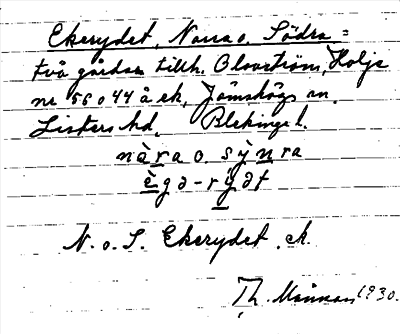 Ekerydet, Norra o. Södra =
två gårdar tillh. Olovström, Holje
nr 56 o 44 å ek, Jämshögs sn.
Listers hd. Blekinge l.
nὰra o. sỳnra
ὲgə-rỳdət
N. o. S. Ekerydet. ek.
Th.
1930.